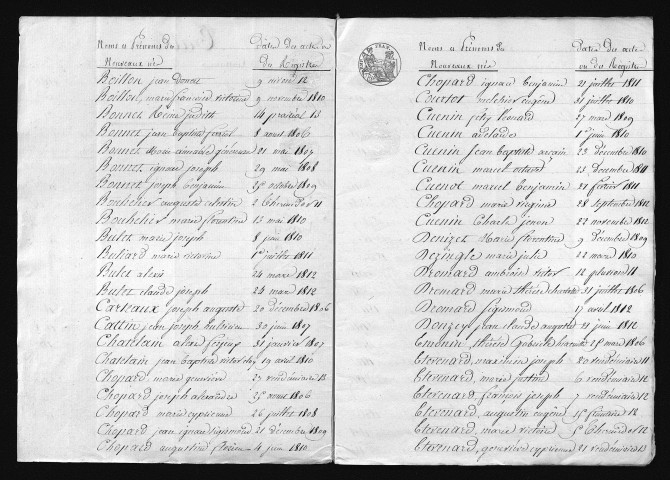 Noms et Prénoms des Date des actes ou
Nouveaux nés du Registre
Boillon jean Donat 9 nivose 12
Boillon, marie françoise victoire 9 novembre 1810
Bonnet Reine judith 14 prairial 13
Bonnet jean baptiste 8 aout 1806
Bonnet Marie aimable généreuse 21 mai 1807
Bonnet ignace joseph 29 mai 1808
Bonnet joseph benjamin 25 octobre 1809
Bouchelier auguste celestin 2 Thermidor 11
Bouhelier marie florentine 13 mai 1810
Bulet marie joseph 8 juin 1810
Buliard marie victoire 1er juillet 1811
Bulet alexis 24 mars 1812
Bulet claude joseph 24 mars 1812
Carteaux joseph auguste 20 décembre 1806
Cattin jean joseph 30 juin 1807
Chatelain aimé 31 janvier 1807
Chatelain jean baptiste victor 19 avril 1810
Chopard, marie geneviève 23 vendémiaire 13
Chopard joseph alexandre 25 aout 1806
Chopard marie cyprienne 26 juillet 1808
Chopard jean ignace sigismond 21 décembre 1809
Chopard augustin 4 juin 1810
Noms et Prénoms des Date des actes
Nouveaux nés ou du Registre
Chopard ignace benjamin 21 juillet 1811
Courtot melchior eugène 31 juillet 1810
Cuenin 27 mars 1809
Cuenin adelaide 1er juin 1810
Cuenin jean baptiste 23 décembre 1810
Cuenin marcel 13 décembre 1811
Cuenot marcel benjamin 21 février 1811
Chopard marie virginie 28 septembre 1812
Cuenin Charle 22 novembre 1812
Denizet Marie florentine 9 décembre 1809
marie julie 22 mars 1810
Dromard ambroise victor 12 pluviose 11
Dromard marie thérèse charlotte 31 juillet 1806
Dromard sigismond 17 avril 1812
Donzey jean claude auguste 21 juin 1812
thérèse Gabriele 25 mars 1806
Etevenard, maximien joseph 20 vendémiaire 11
Etevenard, marie justine 6 vendémiaire 12
Etevenard françois joseph 7 vendémiaire 12
Etevenard, augustin eugène 15 frimaire 12
Etevenard, marie victoire 5 Thermidor 12
Etevenard, geneviève cyprienne 21 vendémiaire 13